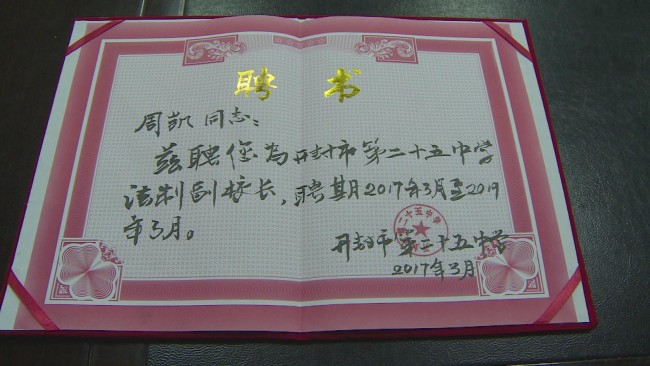 聘 书
周凯同志:
兹聘您为开封市第二十五中学
法制副校长,聘期2017年3月至2019
年3月。
二十五中学
开封市第二十五中学
2017年3月